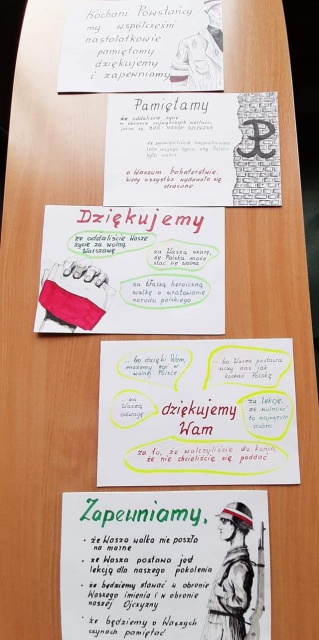 Kochani Powstańcy
my współcześni
nastolatkowie
pamiętamy
dziękujemy
i zapewniamy
Pamiętamy
że oddaliście życie
w obronie najwyższych wartości
jakimi są BÓG HONOR OJCZYZNA
że poświęciliście
lata swojego życia, aby Polska
była wolna
o Waszym bohaterstwie,
kiedy wszystko wydawało się
stracone
Dziękujemy
że oddaliście Wasze
życie za wolną
Warszawę
za Waszą wiarę,
że Polska może
stać się wolna
za Waszą heroiczną
walkę o uratowanie
narodu polskiego
... bo dzięki Wam,
możemy żyć w
wolnej Polsce
... bo Wasza postawa
uczy nas jak
kochać Polskę
... za
Waszą
odwagę
dziękujemy
Wam
za lekcję,
że wolność
to najwyższe
dobro
za to, że walczyliście do końca,
że nie chcieliście się poddać
Zapewniamy,
• że Wasza walka nie poszła
na marne
• że Wasza postawa jest
lekcją dla naszego pokolenia
• że będziemy stawać w obronie
Waszego imienia i w obronie
naszej Ojczyzny
• że będziemy o Waszych
czynach pamiętać